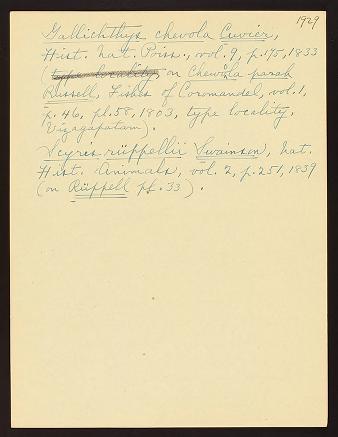 1929
Gallichthys chevola Cuvier,
Hist. Nat. Poiss., vol. 9, p. 175, 1833
type locality, on Chewola parah
Russell, Fishes of Coromandel, vol. 1,
p. 46, pl. 58, 1803, type locality,
Vizagapatam).
Scyris rüppellii Swainson, Nat.
Hist. Animals, vol. 2, p. 251, 1839
(on Rüppell pl. 33).